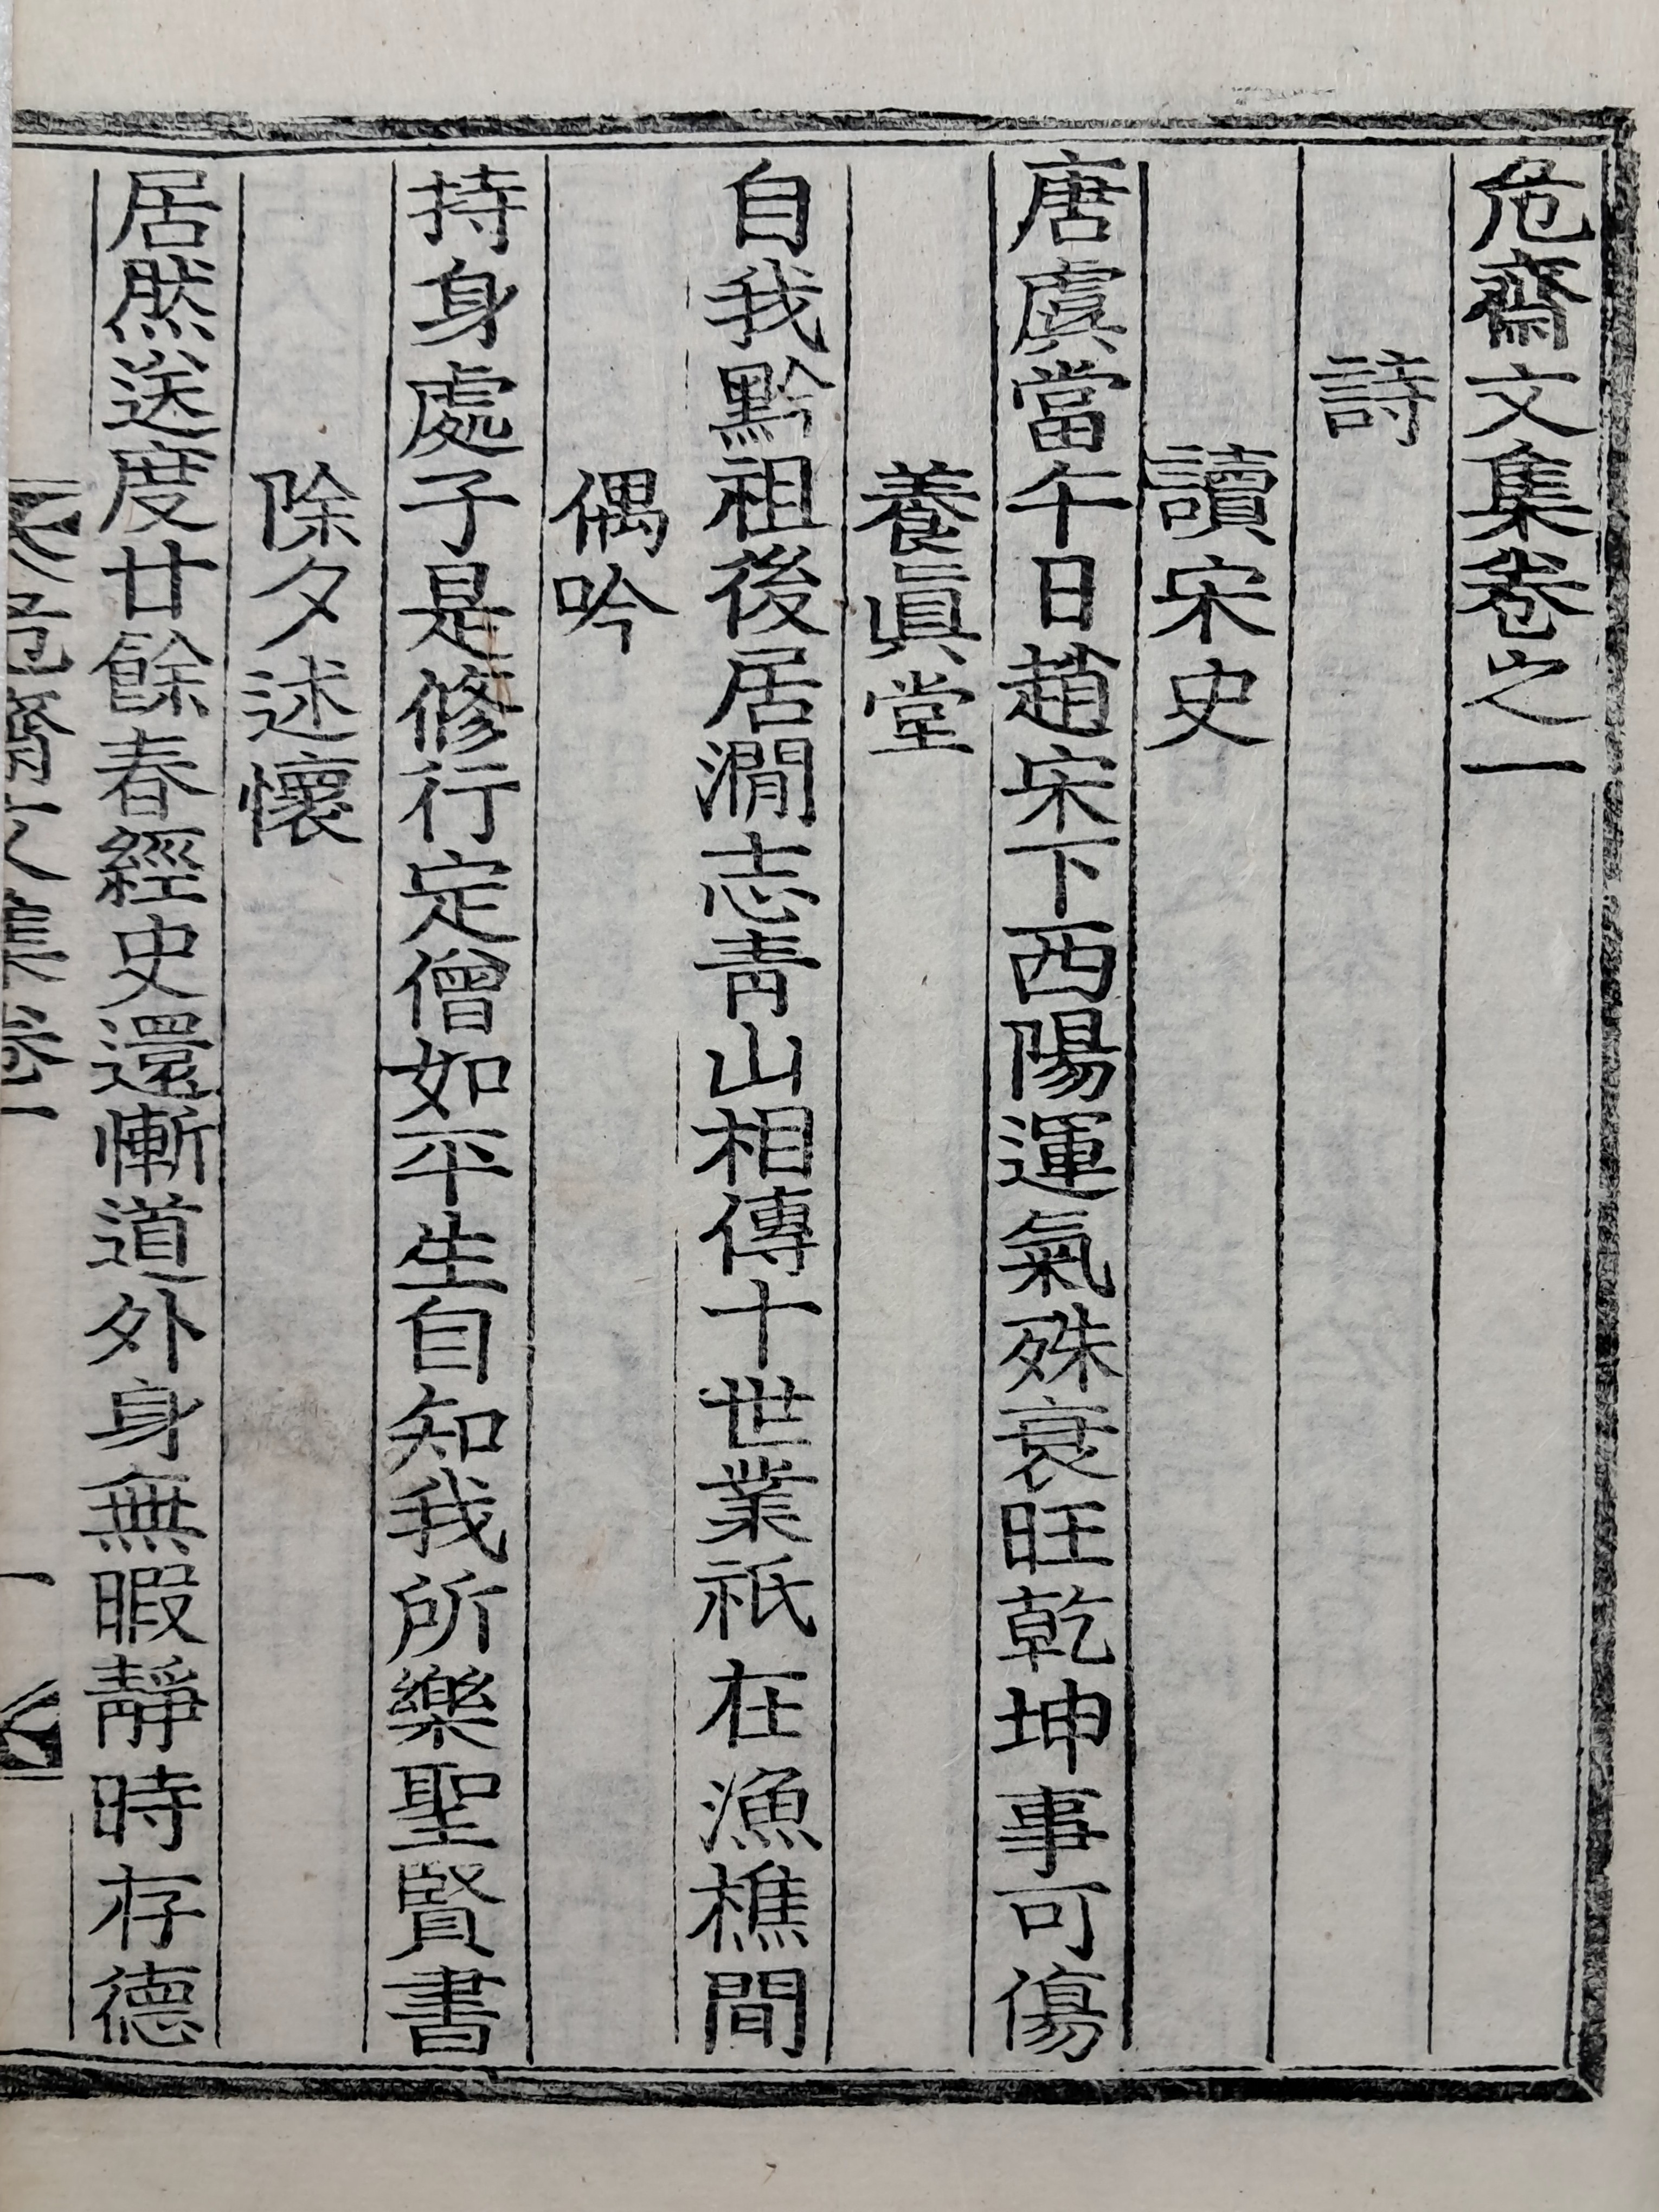 危齋文集卷之一
詩
讀宋史
唐虞當午日趙宋下西陽運氣殊衰旺乾坤事可傷
養眞堂
自我黔祖後居澗志靑山相傳十世業祇在漁樵間
偶吟
持身處子是修行定僧如平生自知我所樂聖賢書
除夕述懷
居然送度廿餘春經史還慚道外身無暇靜時存德
危齋文集卷一
一